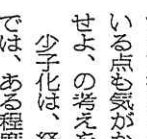 いる点も気がか
せよ、の考えを
少子化は、経
では、ある程度